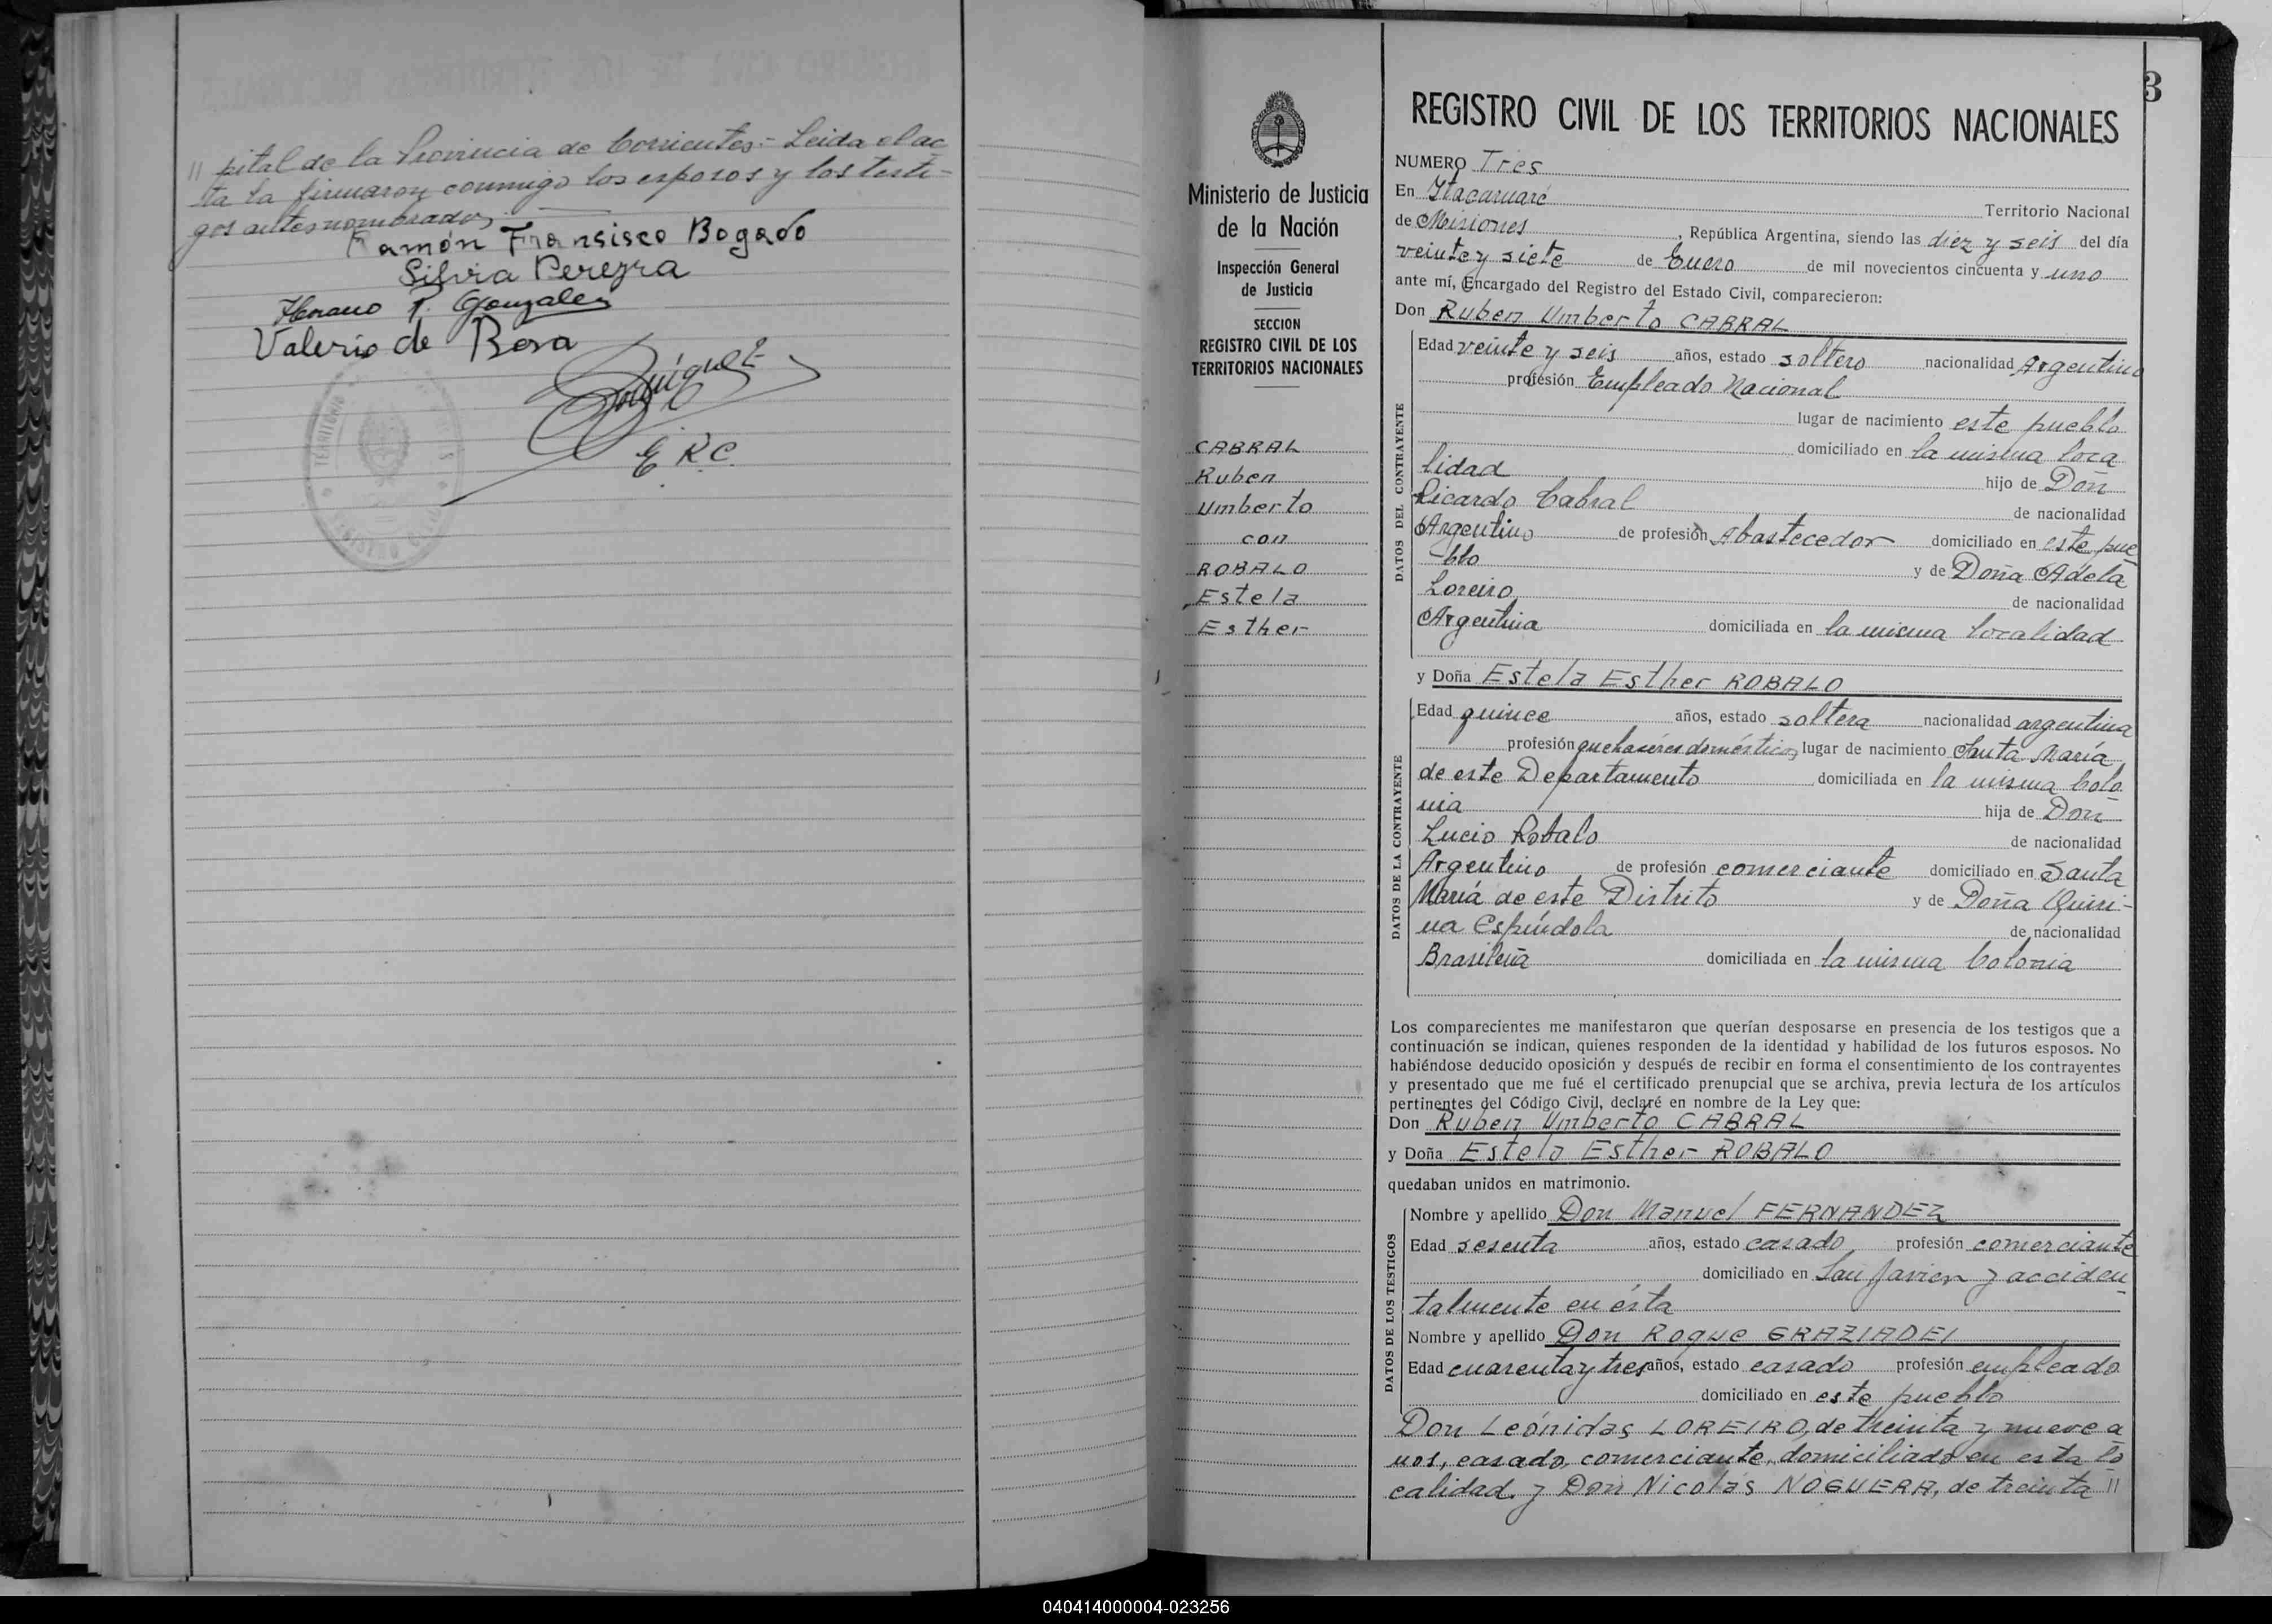 " pital de la Provincia de Corrientes.- Leida el ac
ta la firmaron conmigo los esposos y los testi-
gos antes nombrados
Ramón Fransisco Bogado
Silvia Pereyra
P. Gonzales
Valerio de Rosa
E R.C.
TERRITORIO
REGISTRO CIVIL
3
Ministerio de Justicia
de la Nación
Inspección General
de Justicia
SECCION
REGISTRO CIVIL DE LOS
TERRITORIOS NACIONALES
CABRAL
Ruben
Umberto
con
ROBALO
Estela
Esther
REGISTRO CIVIL DE LOS TERRITORIOS NACIONALES
NUMERO Tres
En Itacaruaré Territorio Nacional
de Misiones, República Argentina, siendo las diez y seis del día
veinte y siete de Enero de mil novecientos cincuenta y uno
ante mí, Encargado del Registro del Estado Civil, comparecieron:
Don Ruben Umberto CABRAL
DATOS DEL CONTRAYENTE
Edad veinte y seis años, estado soltero nacionalidad Argentino
profesión Empleado Nacional
lugar de nacimiento este pueblo
domiciliado en la misma loca
lidad hijo de Don
Ricardo Cabral de nacionalidad
Argentino de profesión Abastecedor domiciliado en este pue
blo y de Doña Adela
Loreiro de nacionalidad
Argentina domiciliada en la misma localidad
y Doña Estela Esther ROBALO
DATOS DE LA CONTRAYENTE
Edad quince años, estado soltera nacionalidad argentina
profesión quehaceres domésticos lugar de nacimiento Santa María
de este Departamento domiciliada en la misma Colo
nia hija de Don
Lucio Robalo de nacionalidad
Argentino de profesión comerciante domiciliado en Santa
María de este Distrito y de Doña Quiri-
na Espíndola de nacionalidad
Brasileña domiciliada en la misma Colonia
Los comparecientes me manifestaron que querían desposarse en presencia de los testigos que a
continuación se indican, quienes responden de la identidad y habilidad de los futuros esposos. No
habiéndose deducido oposición y después de recibir en forma el consentimiento de los contrayentes
y presentado que me fué el certificado prenupcial que se archiva, previa lectura de los artículos
pertinentes del Código Civil, declaré en nombre de la Ley que:
Don Ruben Umberto CABRAL
y Doña Estela Esther ROBALO
quedaban unidos en matrimonio.
DATOS DE LOS TESTIGOS
Nombre y apellido Don Manuel FERNANDEZ
Edad sesenta años, estado casado profesión comerciante
domiciliado en San Javier y acciden
talmente en ésta
Nombre y apellido Don Roque GRAZIADEI
Edad cuarenta y tres años, estado casado profesión empleado
domiciliado en este pueblo
Don Leónidas LOREIRO, de treinta y nueve a
nos, casado, comerciante, domiciliado en esta lo
calidad. y Don Nicolás NOGUERA, de treinta "
040414000004-023256